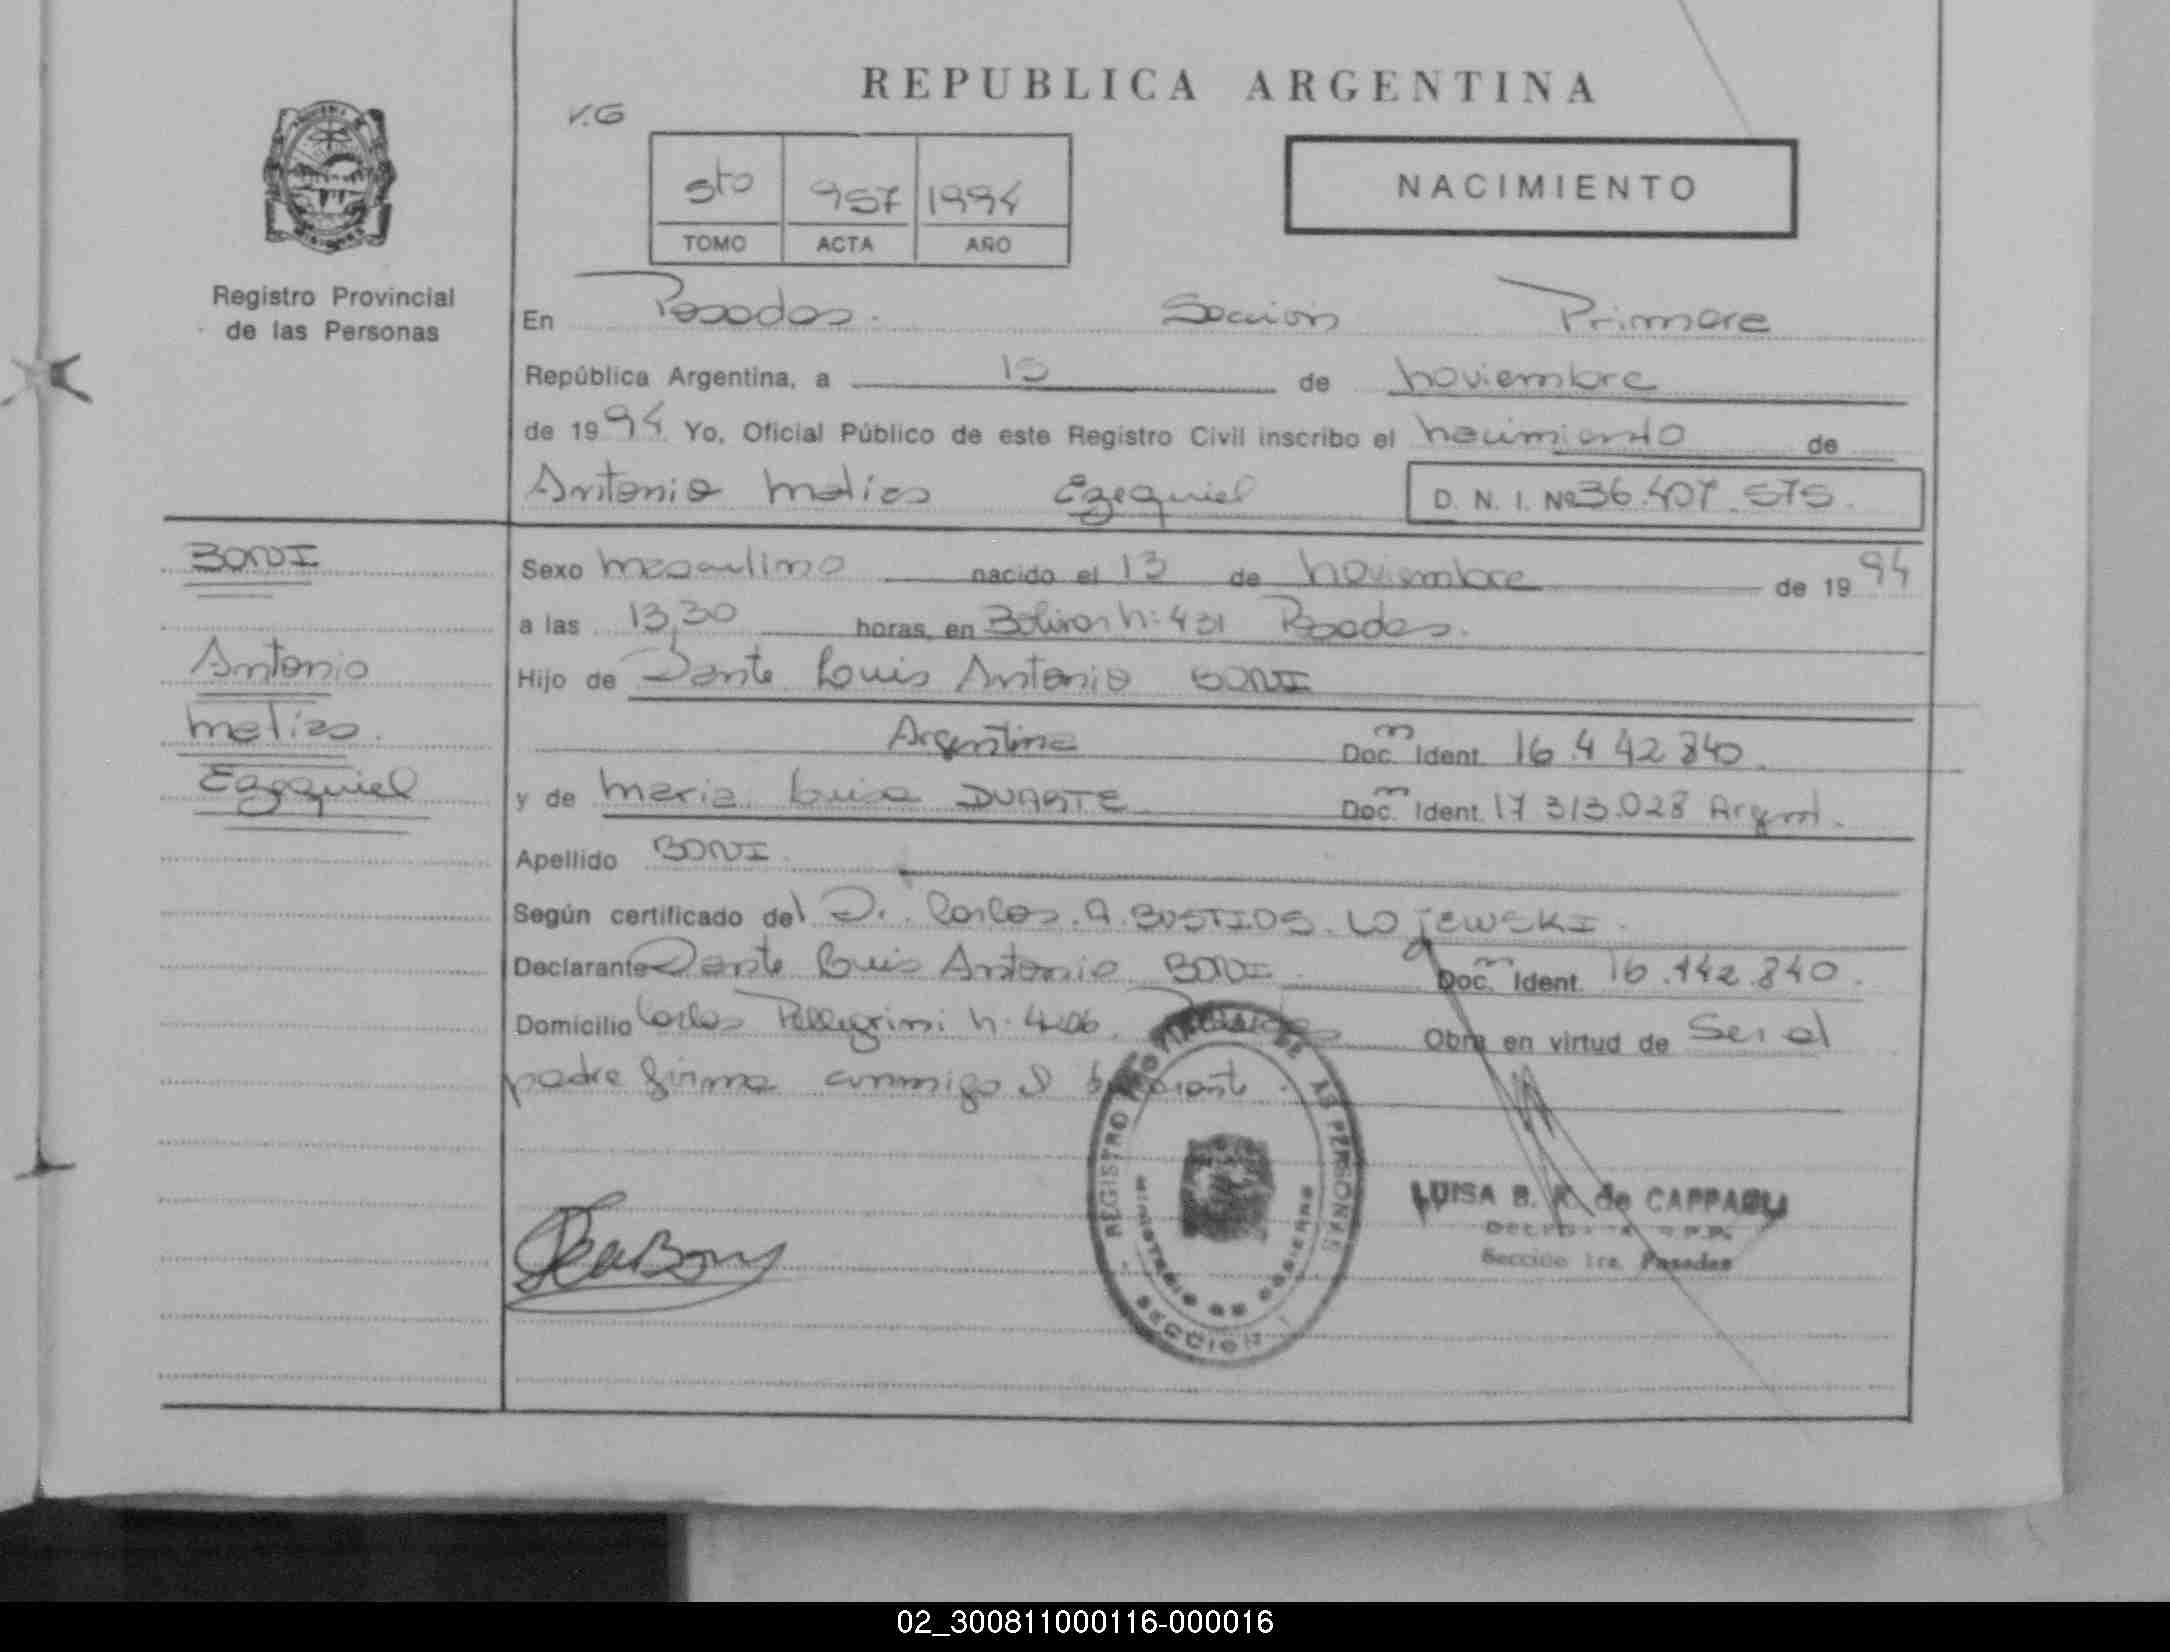 REPUBLICA ARGENTINA
V.G
5to 957 1994
TOMO ACTA AÑO
NACIMIENTO
Registro Provincial
de las Personas
En Posadas. Sección Primera
República Argentina, a 15 de noviembre
de 1994 Yo, Oficial Público de este Registro Civil inscribo el nacimiento de
Antonio Matias Ezequiel D. N. I. Nº 36.407.575.
BONI
Sexo masculino nacido el 13 de noviembre de 1994
a las 13,30 horas, en Bolivar n: 431 Posadas.
Antonio
Hijo de Dante Luis Antonio BONI
Matias.
Argentina Doc. m Ident. 16.442.840.
Ezequiel
y de Maria Luisa DUARTE Doc. m Ident. 17 313.028 Argent.
Apellido BONI
Según certificado del Dr. Carlos. A. BUSTIOS. LOJEWSKI.
Declarante Dante Luis Antonio BONI Doc. m Ident. 16.442.840.
Domicilio Carlos Pellegrini n. Obra en virtud de Ser el
padre firma conmigo el
REGISTRO PROVINCIAL DE LAS PERSONAS
MINISTERIO DE GOBIERNO
SECCION 1
LUISA B. de
Sección 1ra. Posadas
02_300811000116-000016